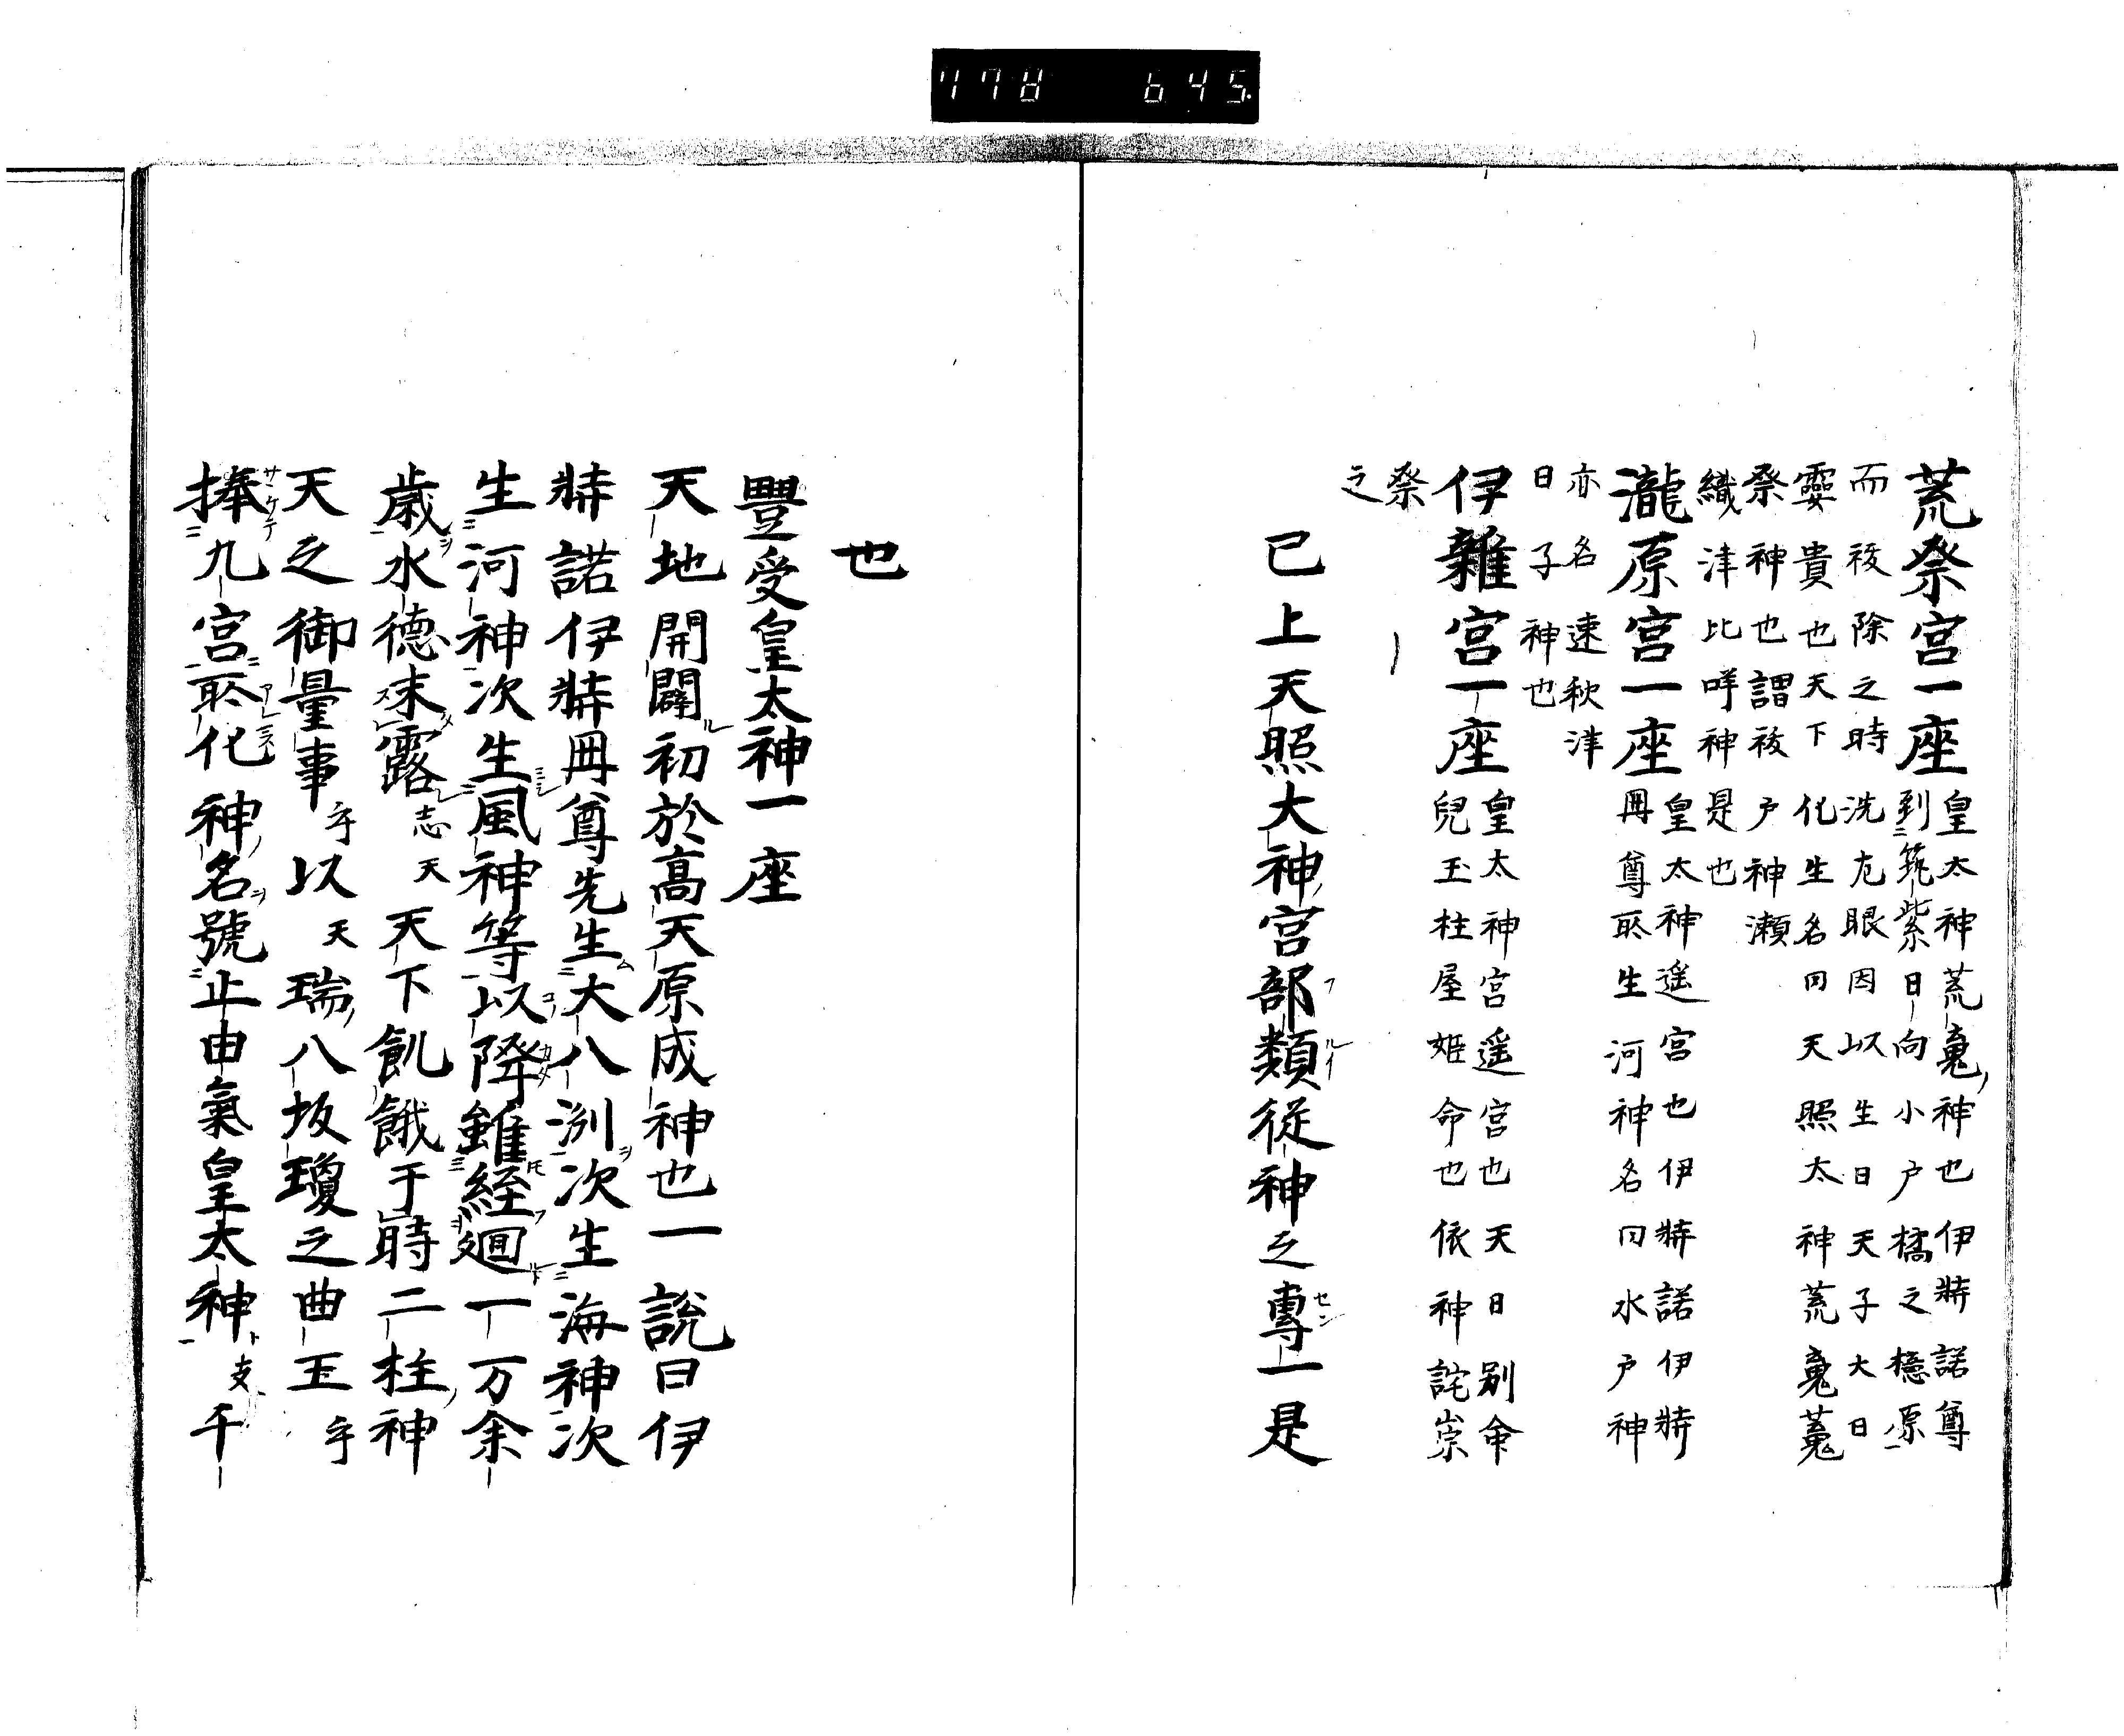 778 645
荒祭宮一座
皇太神荒魂神也伊弉諾尊
到筑紫日向小戶橘之檍原
而祓除之時洗左眼因以生日天子大日
孁貴也天下化生名曰天照太神荒魂
祭神也謂祓戶神瀬
織津比咩神是也
瀧原宮一座
皇太神遥宮也伊弉諾伊弉
冊尊所生河神名曰水戶神
亦名速秋津
日子神也
伊雜宮一座
皇太神宮遥宮也天日別命
兒玉柱屋姬命也依神詫崇
祭
之
已上天照大神宮部類從神之專一是
也
豐受皇太神一座
天地開闢初於高天原成神也一說曰伊
弉諾伊弉冊尊先生大八洲次生海神次
生河神次生風神等以降雖經廻一万余
歲水德未露志天天下飢餓于時二柱神
天之御量事乎以天瑞八坂瓊之曲玉乎
捧九宮所化神名號止由氣皇太神支千